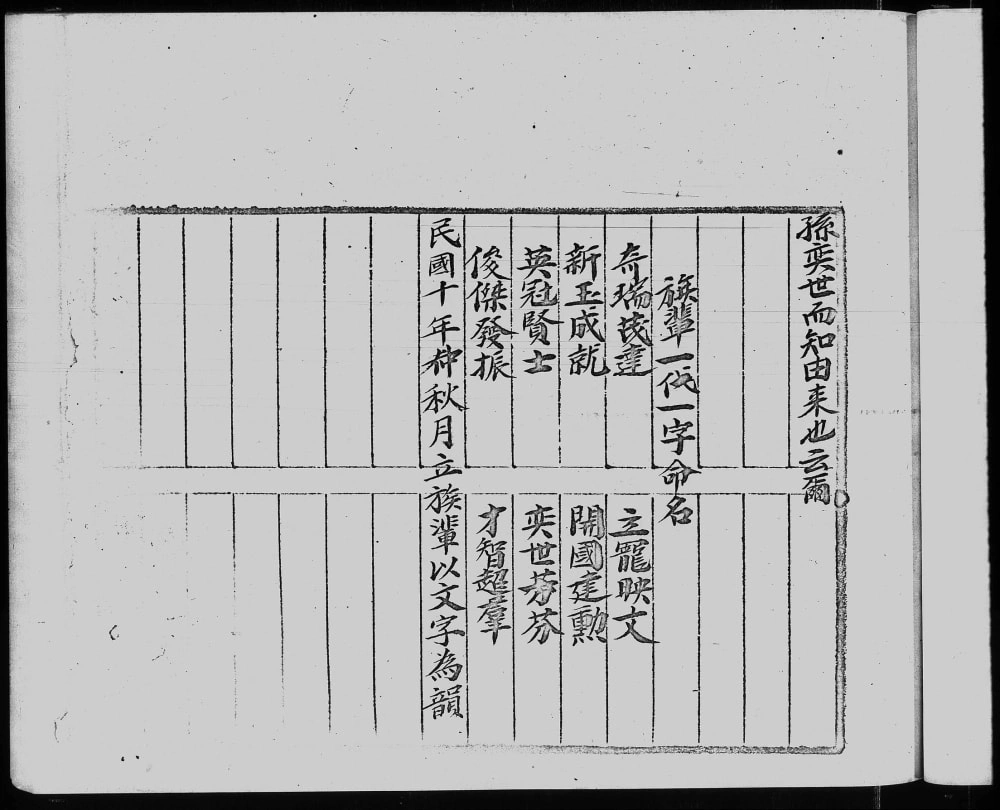 孫奕世而知由来也云爾。
族輩一代一字命名
奇瑞茂達 立寵映文
新玉成就 開國建勳
英冠賢士 奕世芬芬
俊傑發振 才智超羣
民國十年仲秋月立族輩以文字為韻